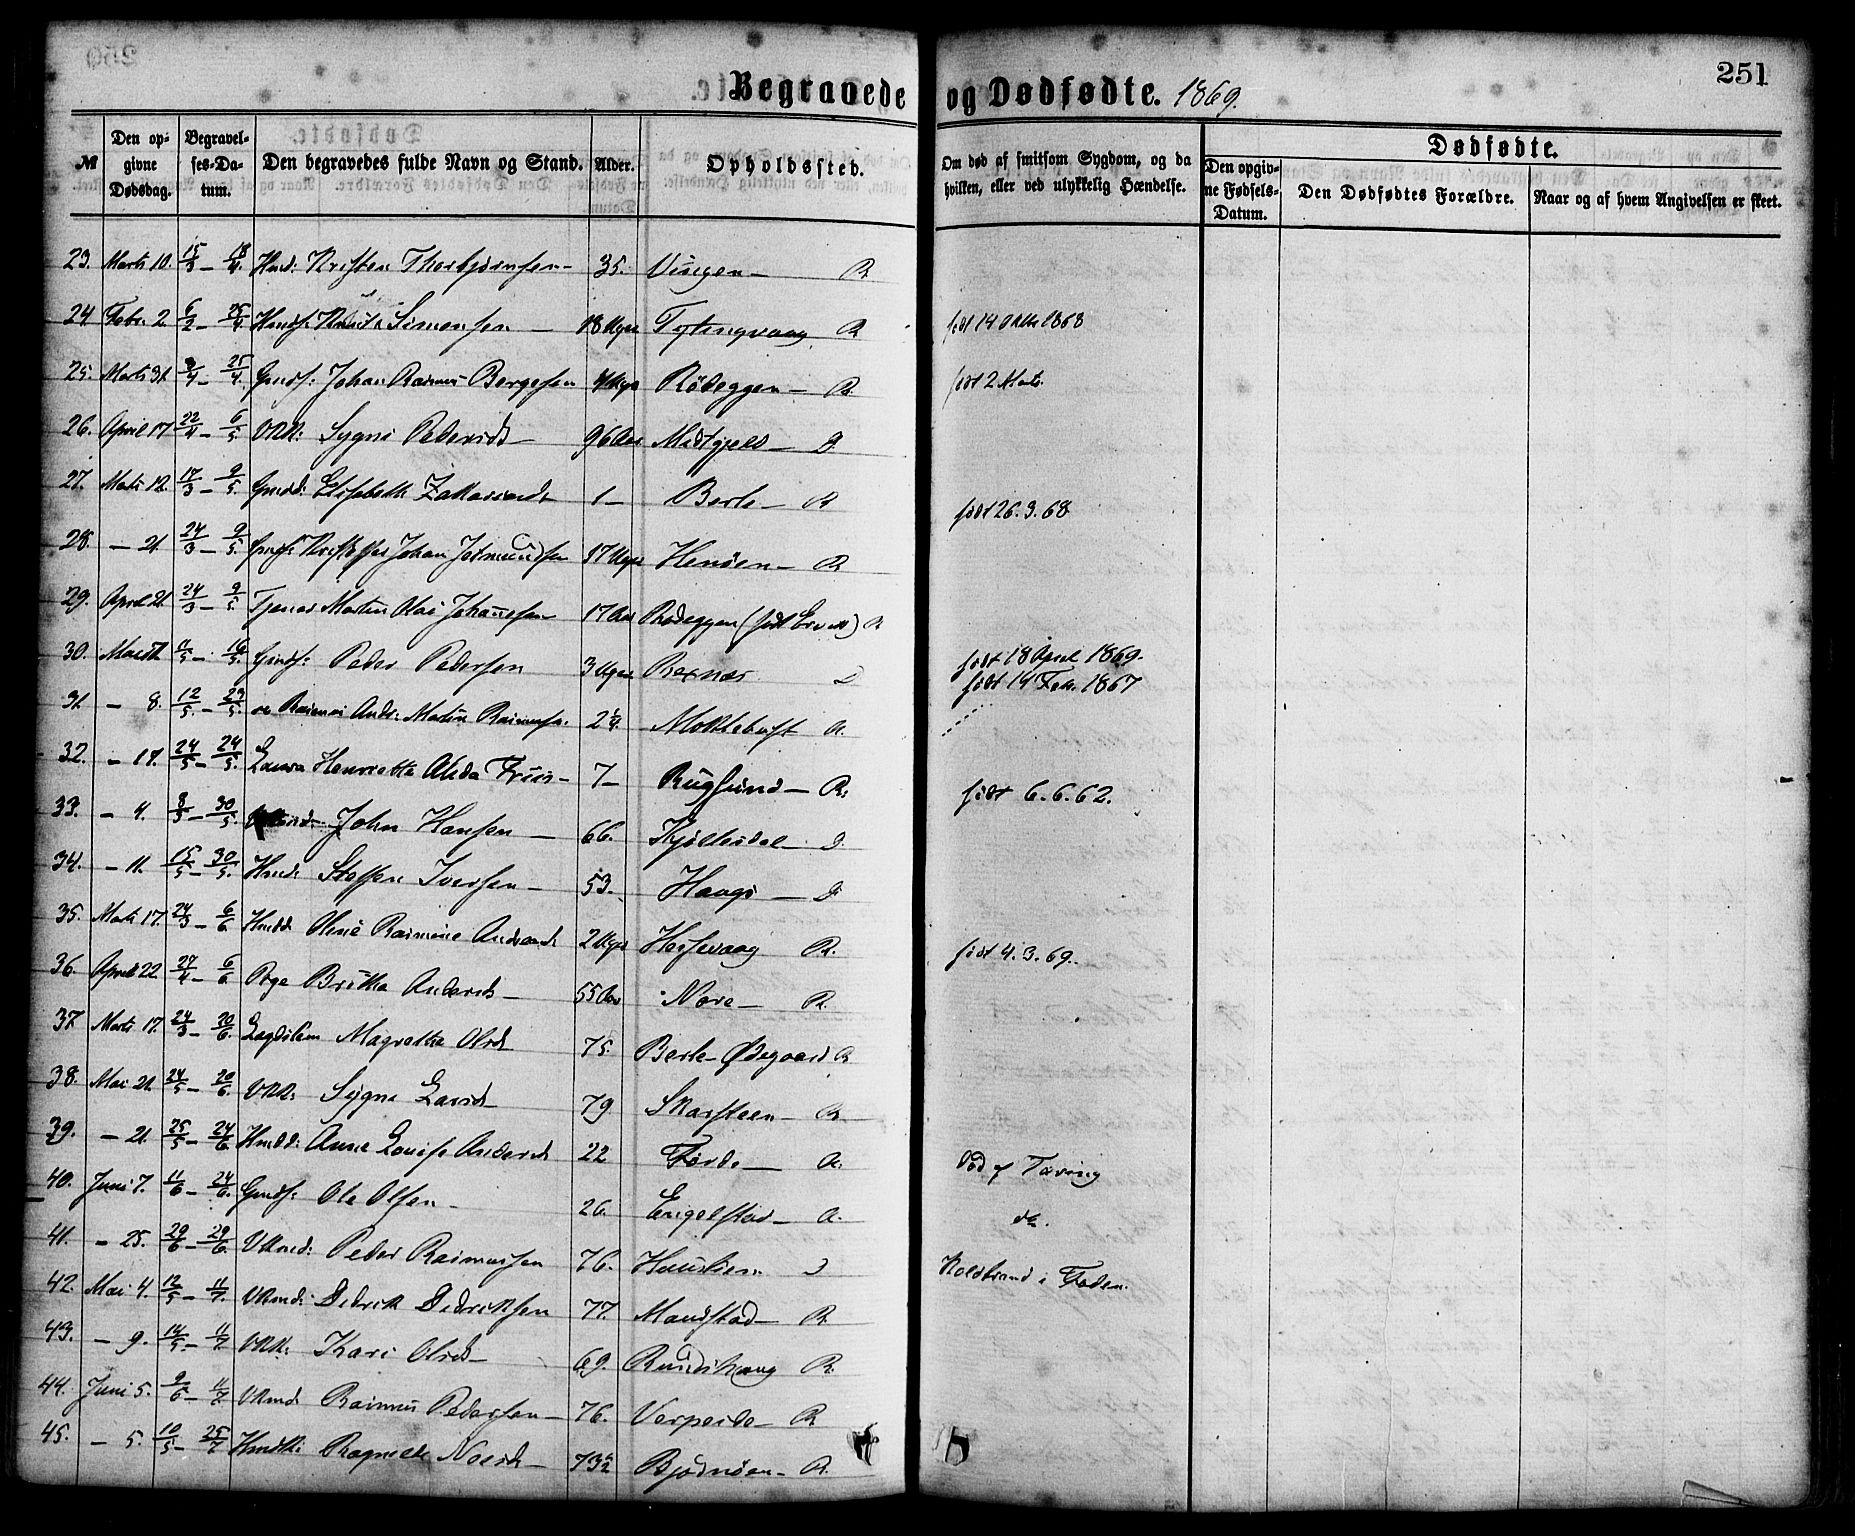 Begravede og Dødfødte. 1869.
251
№ Den opgivne Dødsdag. Begravelses-Datum. Den begravedes fulde Navn og Stand. Alder. Opholdssted. Om død af smitsom Sygdom, og da hvilken, eller ved ulykkelig Hændelse.
Dødfødte.
Den opgivne Fødsels-Datum. Den Dødfødtes Forældre. Naar og af hvem Angivelsen er skeet.
23. Marts 10. 15/3 – 18/4. Kristen Thorbjørnsen – 35. Vingen – R
24 Febr. 2 6/2 – 25/4 Simonsen – 18 Uger Tytingvaag R født 14 1868
25. Marts 31. 3/4 – 25/4. Gmds: Johan Rasmus Børgesen 4 Uger Rødeggen – R født 2 Marts.
26. April 17 22/4 – 6/5. Sygni Pedersd – 96 Aar Midtgjels – D
27. Marts 12. 17/3 – 9/5. Elisabeth Zakariasd. 1 – Berle – R født 26.3.68
28. – 21. 24/3 – 9/5. Kristoffer Johan Jetmundsen 17 Uger Henøen – R
29. April 21. 24/3 – 9/5 Tjener Martin Olai Johannesen 17 Aar Rødeggen (født) R
30. 11/5 – 16/5. Gmds: Peder Pedersen 3 Uger D født 18 April 1869.
31 – 8. 12/5 – 23/5. Rasmus Andr: Martin Rasmuss. 2 1/4. Moklebust R. født 14 Feb. 1867
32. – 17. 24/5 – 24/5. Laura Henriette Alida Friis – 7 – Rugsund – R. født 6.6.62.
33. – 4. 8/5 – 30/5. John Hansen – 66. Kjøllesdal – D.
34. – 11. 15/5 – 30/5. Hmd: Steffen Iversen – 53. Haugs – D
35. Marts 17. 24/3 – 6/6 Hmdd: Oline Rasmine Andreasd 2 Uger Hessevaag R. født 4.3.69.
36. April 22 27/4 – 6/6 Pige Brithe Andersd – 55 Aar Nore – R.
37 Marts 17. 24/3 – 20/6. Lægdslem Magrethe Olsd 75. Berle – Ødegaard R
38. Mai 21. 24/5 – 20/6. Sygni Larsd 79 Skarsteen – R
39. – 21. 25/5 – 24/6. Hmdd: Anne Lovise Andersd 22 Førde – R. Død af Tæring
40. Juni 7. 11/6 – 24/6. Gmds: Ole Olsen – 26. Engelstad – R. do.
41. – 25. 29/6 – 29/6. Peder Rasmussen 76. D Koldbrand i Foden.
42. Mai 4. 12/5 – 11/7. Didrik Didriksen 77. Maudstad – R
43. – 9. 14/5 – 11/7 Kari Olsd – 69. R.
44. Juni 5. 9/6 – 11/7 Rasmus Pedersen – 76. Verpeide – R
45. – 5. 10/5 – 25/7 Ragnilde Nilsd – 73 1/2 Bjødnøen – R.